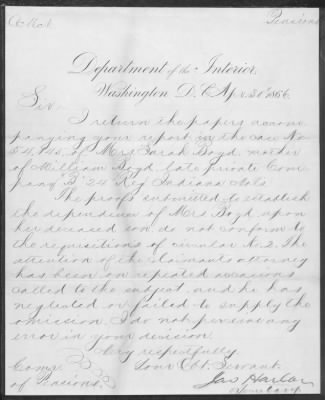 Pensions
Department of the Interior,
Washington D.C. Apr. 30th 1866.
Sir:
I return the papers accom-
panying your report in the case No.
of Mrs Sarah Boyd, mother
of William Boyd, late private Com-
pany "B" 24 Reg Indiana Vols.
The proofs submitted to establish
the dependence of Mrs Boyd upon
her deceased son do not conform to
the requisitions of circular No. 2. The
attention of the claimants attorney
has been on repeated occasions
called to the subject and he has
neglected or failed to supply the
omission. I do not perceive any
error in your decision.
Very respectfully
Your Obt. Servant
Jas Harlan
Secretary
Comr.
of Pensions.